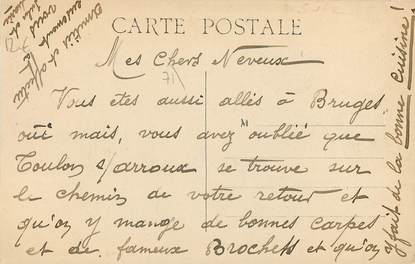 CARTE POSTALE
Mes Chers Neveux
71
Vous etes aussi allés à Bruges,
mais, vous avez m'oublié que
Toulon s/arroux se trouve sur
le chemin de votre retour et
qu'on y mange de bonnes carpes
et de fameux Brochets et qu'on
y fait de la bonne cuisine!
Amitiés et
vous